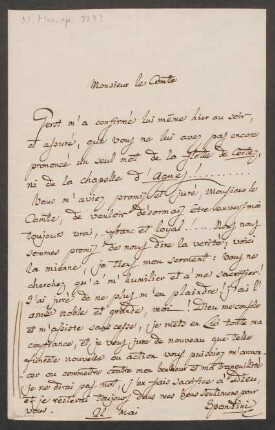 Monsieur le Comte
Perst m'a confirmé lui même hier au soir,
et assuré, que vous ne lui avez pas encore
prononcé un seul mot de la flotte de Cortez,
ni de la chapelle d'Agnes!
Vous m'aviez promis et juré, Monsieur le
Comte, de vouloir désormais être envers moi
toujours vrai, franc et loyal. Nous nous
sommes promis de nous dire la verité; voici
la mienne; je tiens mon serment: Vous ne
cherchez qu'à m'humilier et à me sacrifier!
J'ai juré de ne plus m'en plaindre; j'ai l'
ame noble et grande, moi! Dieu me console
et m'assiste sans cesse; je mets en Lui toute ma
confiance, et je vous jure de nouveau que telle
nouvelle ou action vous puissiez
ou commettre contre mon bonheur et ma tranquillité
je ne dirai pas mot; j'en fais sacrifice à Dieu,
et je resterai toujours dans mes
vous.
21 Mai Spontini